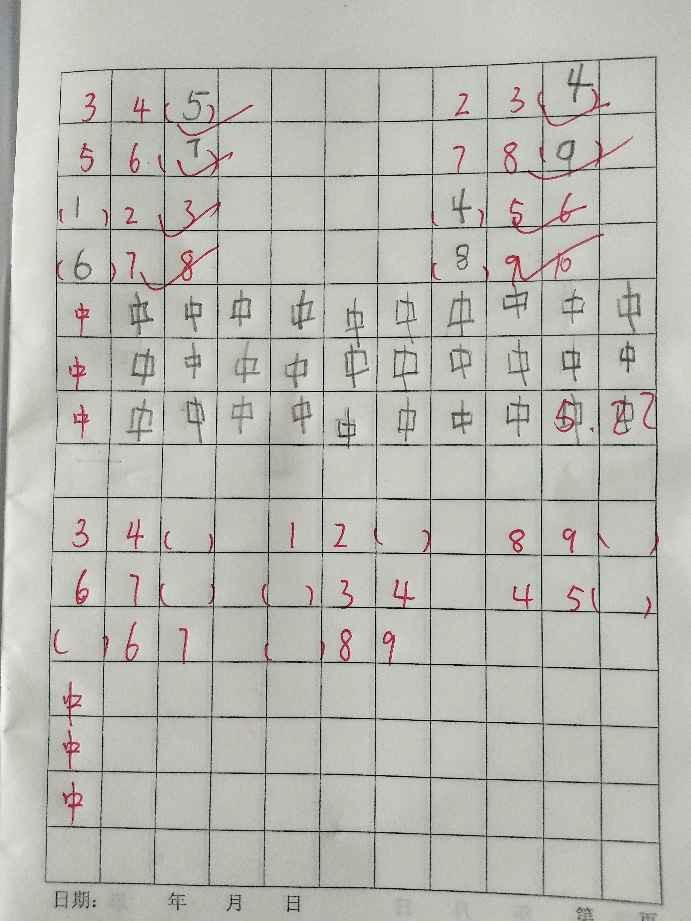 3 4 (5) 2 3 (4)
5 6 (7) 7 8 (9)
(1) 2 3 (4) 5 6
(6) 7 8 (8) 9 10
中 中 中 中 中 中 中 中 中 中 中
中 中 中 中 中 中 中 中 中 中 中
中 中 中 中 中 中 中 中 中 中 中
5.22
3 4 ( ) 1 2 ( ) 8 9 ( )
6 7 ( ) ( ) 3 4 4 5 ( )
( ) 6 7 ( ) 8 9
中
中
中
日期: 年 月 日 第 页